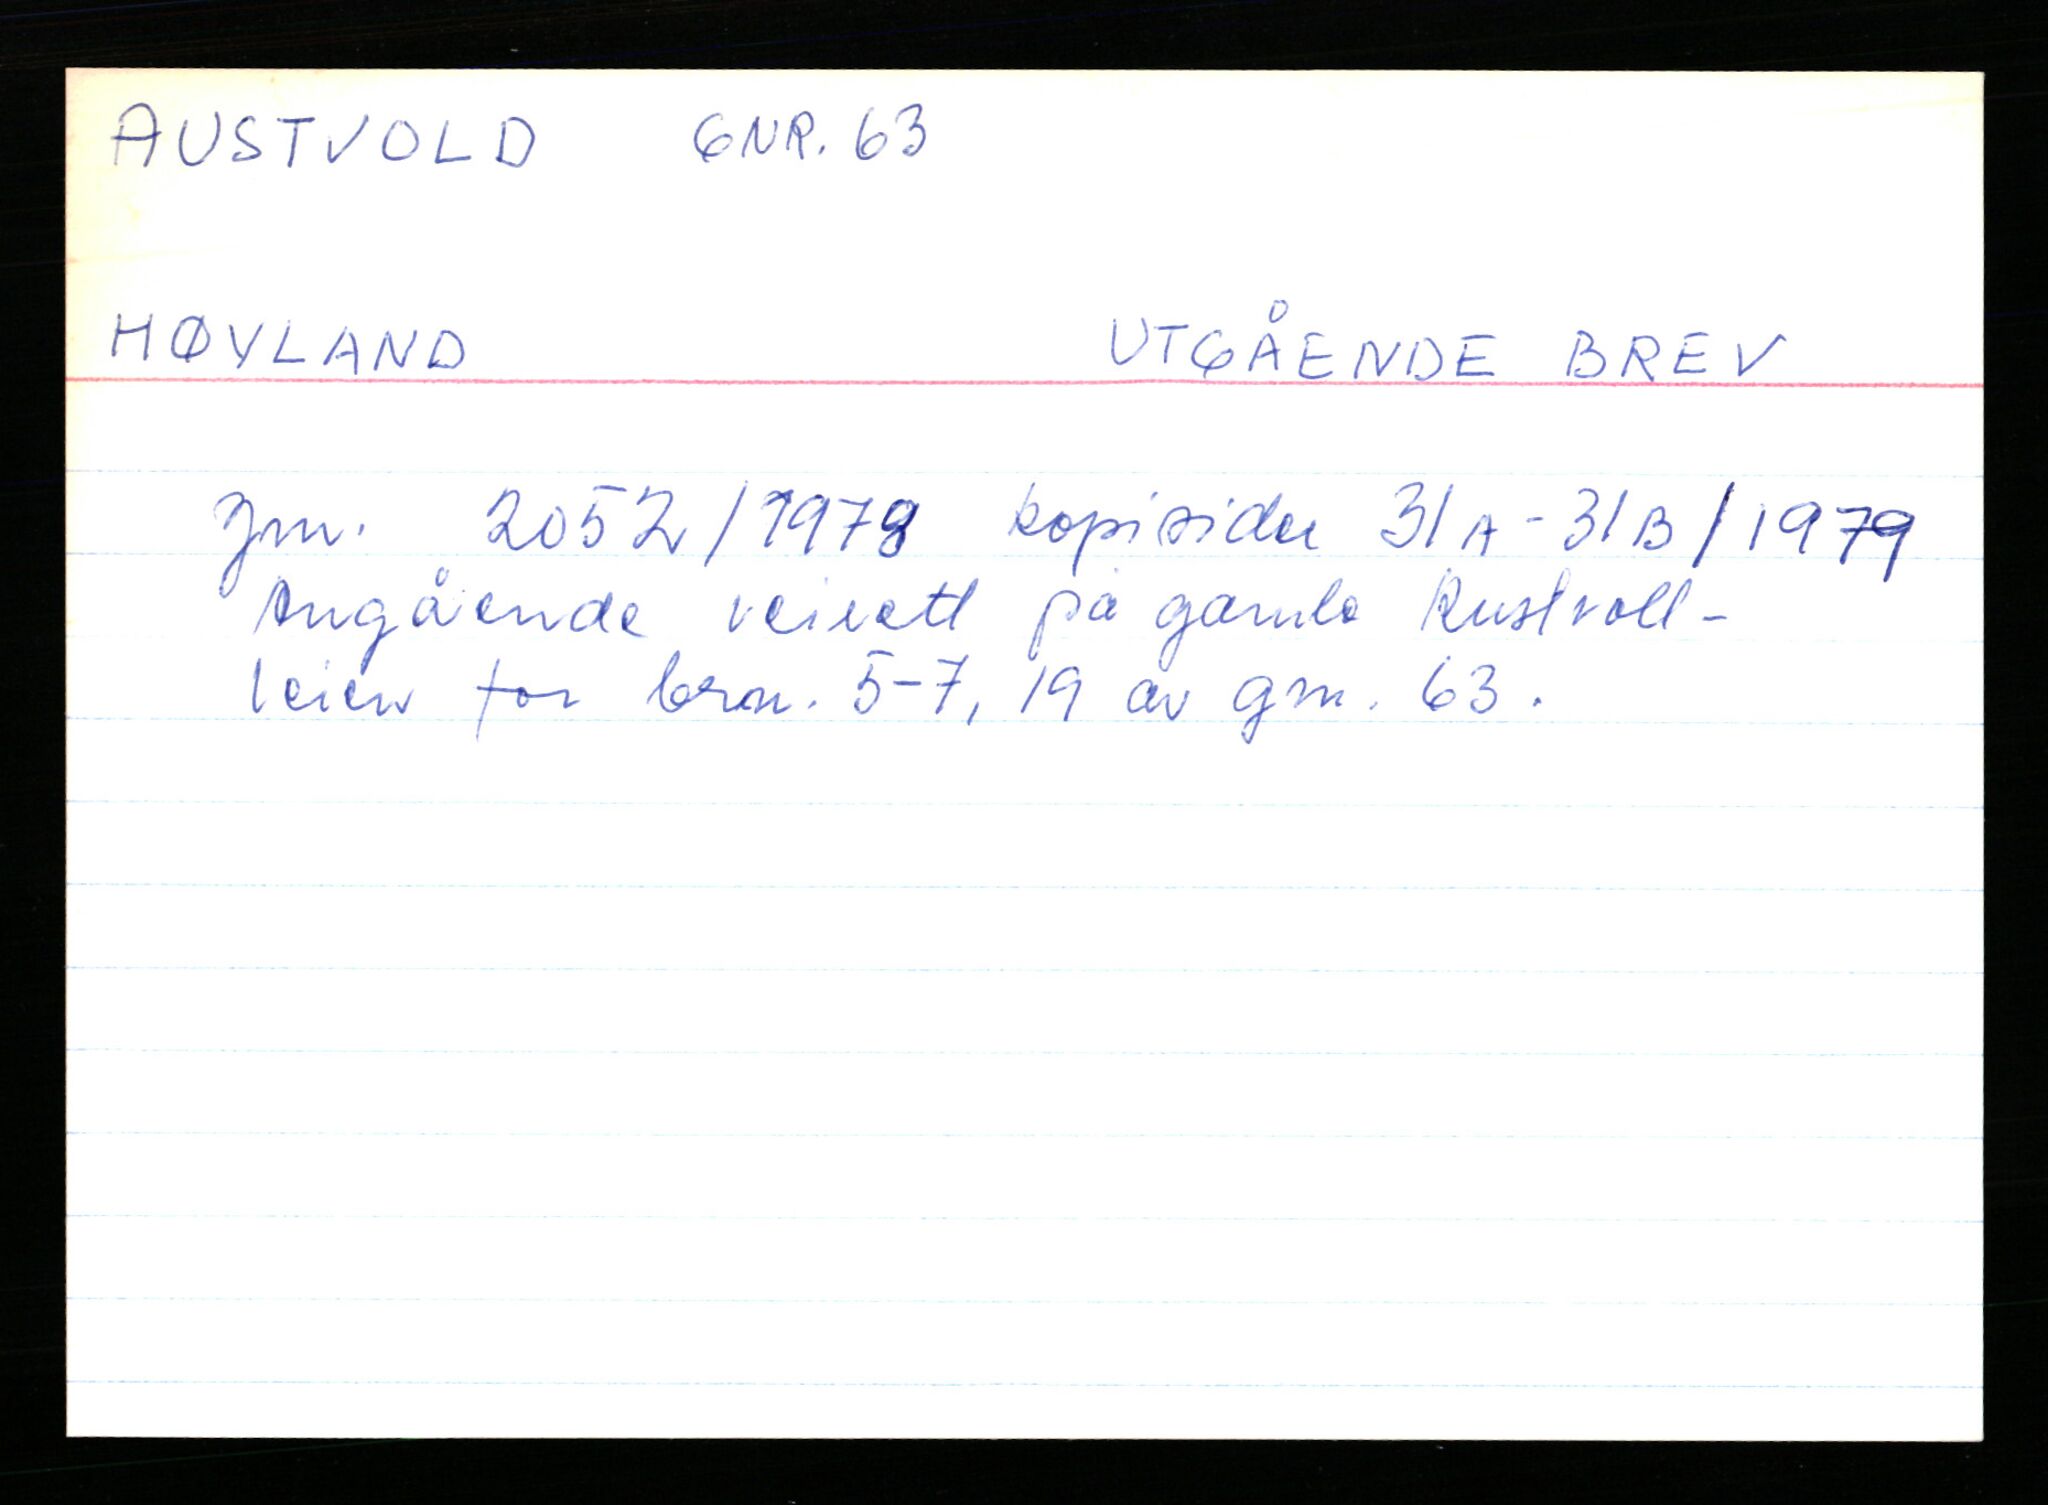 AUSTVOLD GNR. 63
HØYLAND UTGÅENDE BREV
Jnr. 2052/1978 kopisider 31A-31B/1979
Angående veirett på gamle Austvoll-
veien for brnr. 5-7, 19 av gnr. 63.